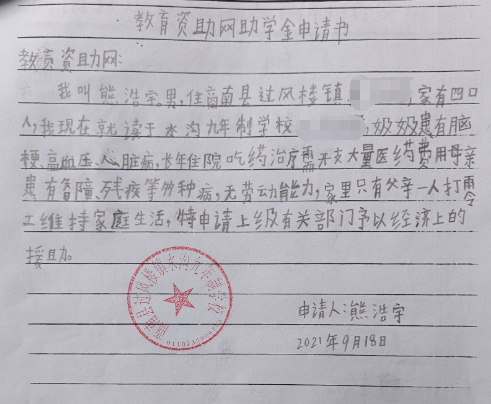 教育资助网助学金申请书
教育资助网:
我叫熊浩宇,男,住商南县过风楼镇,家有四口
人,我现在就读于水沟九年制学校奶奶患有脑
梗,高血压、心脏病,长年住院吃药治疗需支大量医药费用母亲
患有智障、残疾等多种病,无劳动能力,家里只有父亲一人打零
工维持家庭生活,特申请上级有关部门予以经济上的
援助。
商南县过风楼镇水沟九年制学校
申请人:熊浩宇
2021年9月18日